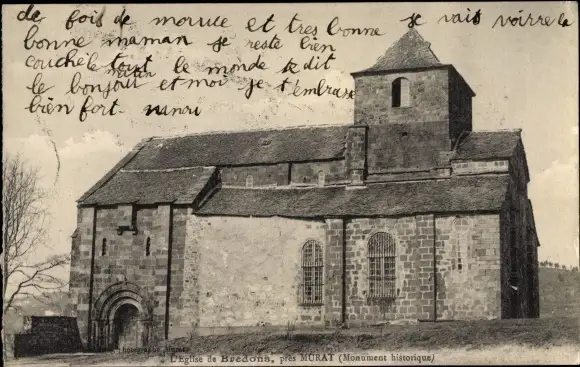 de fois de morute et tres bonne je vais voirre la
bonne maman je reste bien
couché le matin tout le monde te dit
le bonjour et moi je t'embrasse
bien fort nanou
L'Eglise de Bredons, près MURAT (Monument historique)